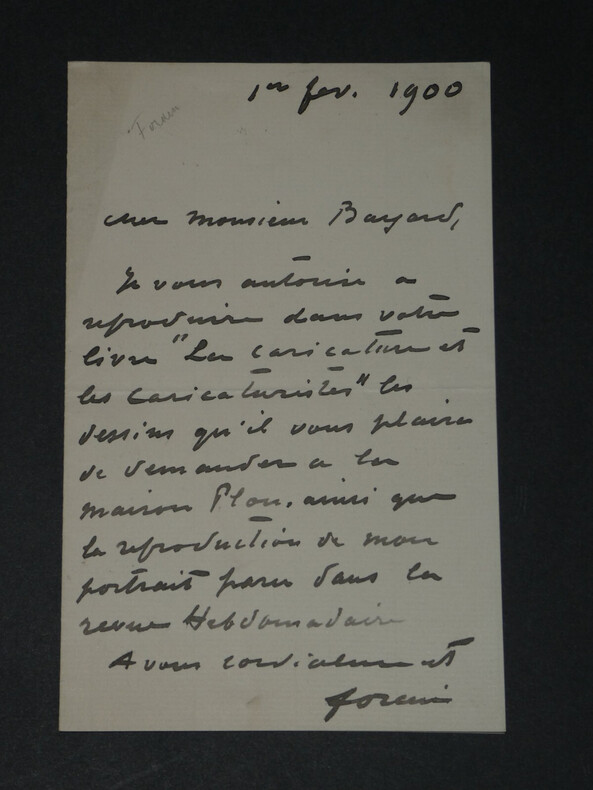 1er fev. 1900
Forain
cher Monsieur Bayard,
Je vous autorise a
reproduire dans votre
livre "La Caricature et
les Caricaturistes" les
dessins qu'il vous plaira
de demander a la
maison Plon, ainsi que
la reproduction de mon
portrait paru dans la
revue Hebdomadaire
A vous cordialement
forain